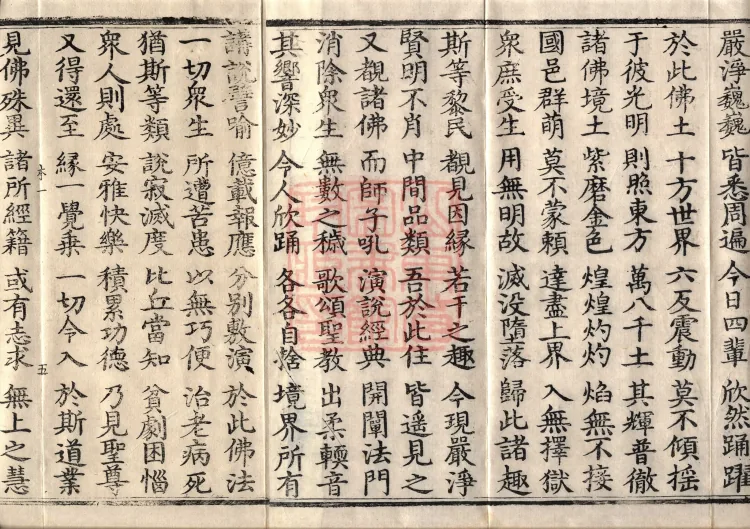 嚴淨巍巍 皆悉周遍 今日四輩 欣然踊躍
於此佛土 十方世界 六反震動 莫不傾搖
于彼光明 則照東方 萬八千土 其輝普徹
諸佛境土 紫磨金色 煌煌灼灼 焰無不接
國邑群萌 莫不蒙賴 達盡上界 入無擇獄
衆庶受生 用無明故 滅没墮落 歸此諸趣
斯等黎民 觀見因緣 若干之趣 今現嚴淨
賢明不肖 中間品類 吾於此住 皆遥見之
又觀諸佛 而師子吼 演說經典 開闡法門
消除衆生 無數之穢 歌頌聖教 出柔輭音
其響深妙 令人欣踊 各各自捨 境界所有
講說譬喻 億載報應 分別敷演 於此佛法
一切衆生 所遭苦患 以無巧便 治老病死
猶斯等類 說寂滅度 比丘當知 貧劇困惱
衆人則處 安雅快樂 積累功德 乃見聖尊
又得還至 緣一覺乗 一切令入 於斯道業
一 五
見佛殊異 諸所經籍 或有志求 無上之慧